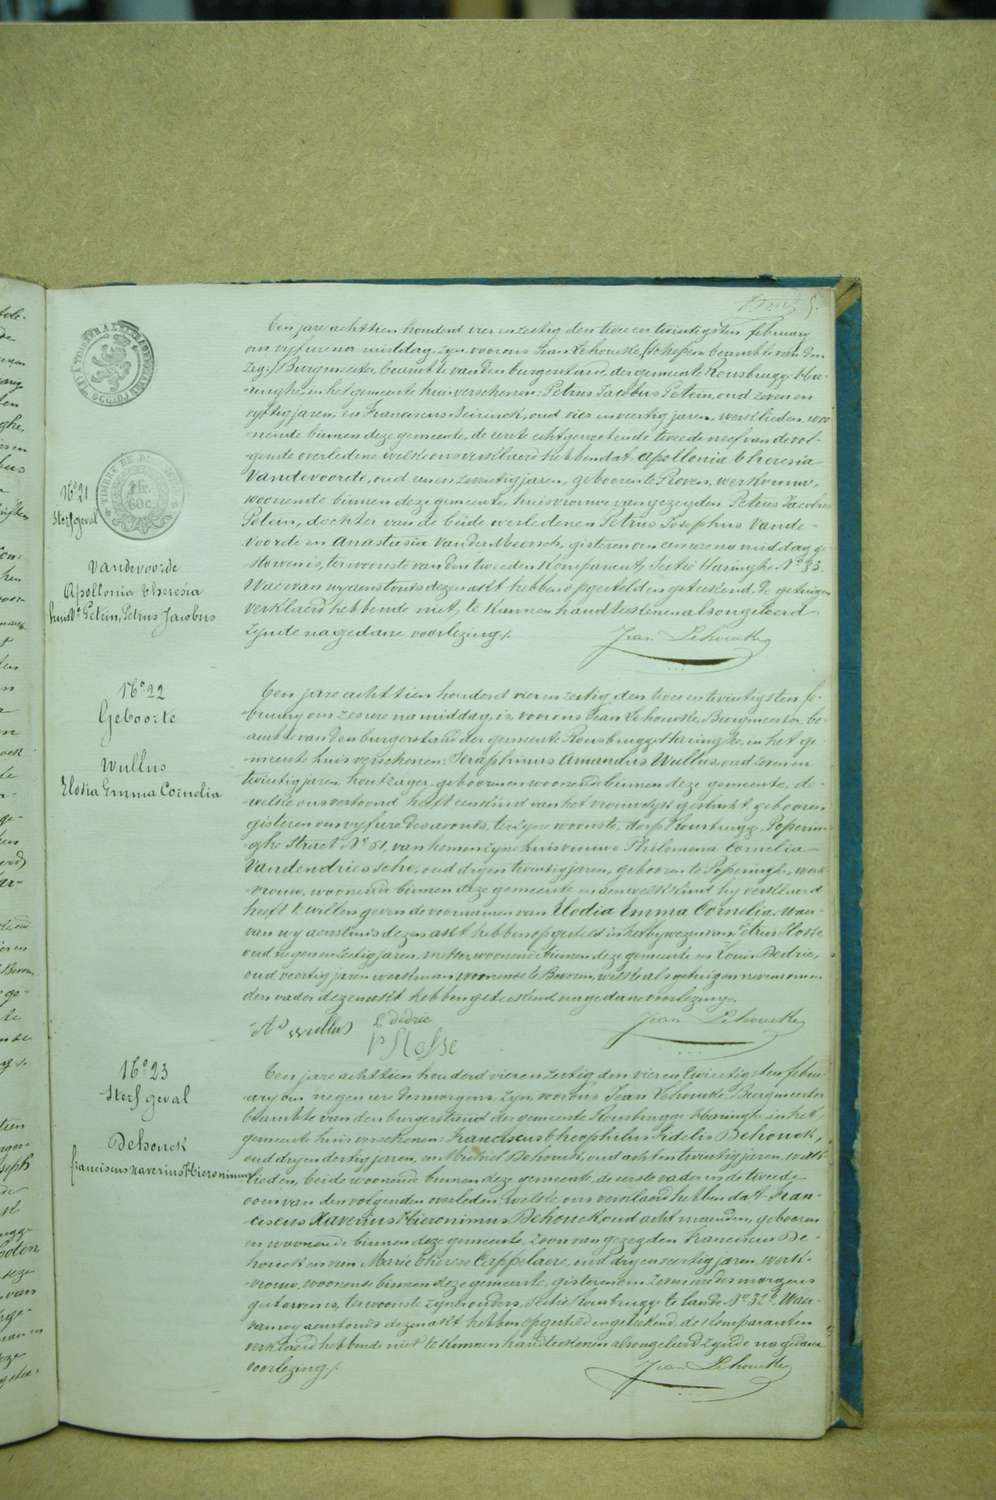 N.° 21
Sterfgeval
Vandevoorde
Apollonia Theresia
huisv.e Petein, Petrus Jacobus
Ten jare achttien honderd vier en zestig den twee en twintigsten february
om vijf ure na middag, zyn voor ons Jean Lehoucke, Schepen beambte van den
Burgmeester beambte van den burgerstand, der gemeente Rousbrugge-Ha-
ringhe, in het gemeente huis verschenen: Petrus Jacobus Petein, oud zeven en
vyftig jaren, en Franciscus Deirinck, oud vier en veertig jaren, werklieden, woo-
nende binnen deze gemeente, de eerste echtgenoot en de tweede neef van de vol-
gende overledene welke ons verklaerd hebben dat Apollonia Theresia
Vandevoorde, oud een en zeventig jaren, geboren te Proven, werkvrouw,
woonende binnen deze gemeente, huisvrouwe van gezeyden Petrus Jacobus
Petein, dochter van de beide overledenen Petrus Josephus Vande-
voorde en Anastasia Van der Meersch, gisteren om een ure na middag ge-
storven is, ter woonste van den tweeden Komparent, Sectie Haringhe N.° 93.
Waer van wy aenstonds dezen akt hebben opgesteld en geteekend. De getuigen
verklaerd hebbende niet te kunnen handteekenen als ongeleerd
zynde na gedane voorlezing/.
Jean Lehoucke
N.° 22
Geboorte
Wullus
Elodia Emma Cornelia
Ten jare achttien honderd vier en zestig den twee en twintigsten fe-
bruary om zes ure na middag, is voor ons Jean Lehoucke Burgmeester be-
ambte van den burgerstand der gemeente Rousbrugge-Haringhe, in het ge-
meente huis verschenen: Seraphinus Amandus Wullus, oud zeven en
twintig jaren, houtzager, geboren en woonende binnen deze gemeente, de-
welke ons vertoond heeft een kind van het vrouwelyk geslacht, geboren
gisteren om vyf ure des avonds, ter zyne woonste, dorp Rousbrugge, Poperin-
ghe Straet N.° 51, van hem en zyne huisvrouwe Philomena Cornelia
Vandendriessche, oud dry en twintig jaren, geboren te Poperinghe, werk-
vrouw, woonende binnen deze gemeente en aen welk kind hy verklaerd
heeft te willen geven de voornamen van Elodia Emma Cornelia. Waer-
van wy aenstonds dezen akt hebben opgesteld in het bywezen van Petrus Hosse
oud negen en zestig jaren, metser, woonende binnen deze gemeente en Louis Dedrie,
oud veertig jaren werkman woonende te Beveren, welke als getuigen nevens ons en
den vader dezen akt hebben geteekend na gedane voorlezing.
A.d Wullus
L dedrie
P Hosse
Jean Lehoucke
N.° 23
Sterfgeval
Dehouck
franciscus xaverius Hieronimus
Ten jare achttien honderd vier en zestig den vier en twintigsten febru-
ary om negen ure des morgens zyn, voor ons Jean Lehoucke Burgmeester
beambte van den burgerstand der gemeente Rousbrugge-Haringhe in het
gemeente huis verschenen: Franciscus Theophilus Fidelis Dehouck,
oud dry en dertig jaren, en Michiel Dehouck, oud acht en twintig jaren, werk-
lieden, beide woonende binnen deze gemeente, de eerste vader en de tweede
oom van den volgenden overleden, welke ons verklaerd hebben dat Fran-
ciscus Xaverius Hieronimus Dehouck oud acht maenden, geboren
en woonende binnen deze gemeente, zoon van gezegden Franciscus De-
houck en van Marie Therese Cappelaere, oud dry en veertig jaren, werk-
vrouw, woonende binnen deze gemeente, gisteren om zeven ure des morgens
gestorven is, ter woonste zyner ouders, Sectie Rousbrugge te lande N.° 32. Waer
van wy aenstonds dezen akt hebben opgesteld en geteekend, de Komparanten
verklaerd hebbende niet te kunnen handteekenen als ongeleerd zynde na gedane
voorlezing/.
Jean Lehoucke